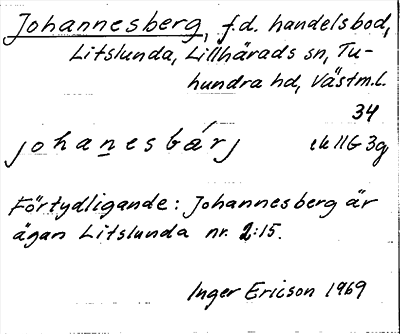 Johannesberg, f.d. handelsbod,
Litslunda, Lillhärads sn, Tu-
hundra hd, Västm.l.
34
johanesbärj ek 11G 3g
Förtydligande: Johannesberg är
ägan Litslunda nr. 2:15.
Inger Ericson 1969